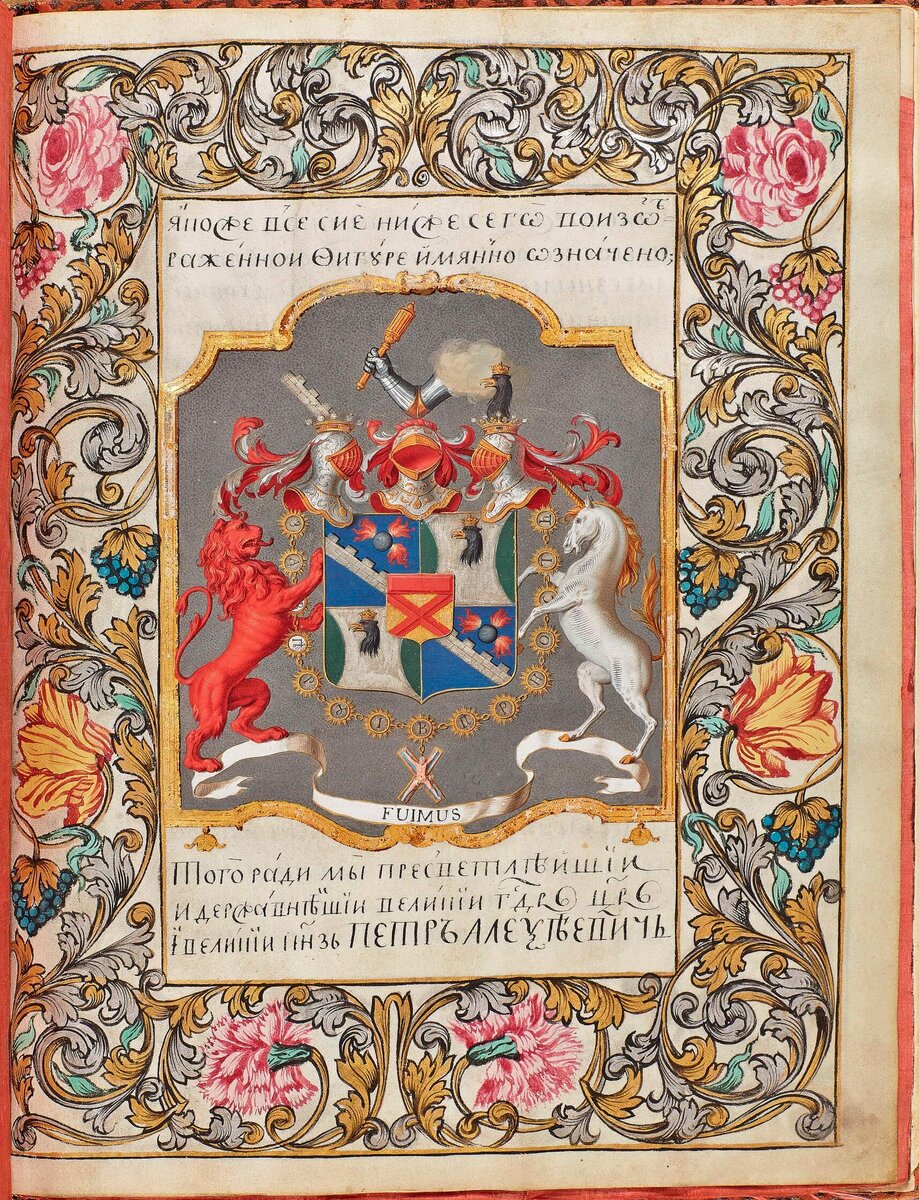 Якоже все сие ниже сегѡ во изѡб=
раже́нной Ѳигꙋ́ре и҆мянно ѡзна́чено;
FUIMUS
Того̀ ра́ди мы̀ пресветлѣ́йшїй
и держа́внѣйшїй вели́кїй гдⷭ҇рь цр҃ь
і вели́кїй кн҃зь ПЕТРЪ АЛЕѮѢЕВИЧЬ